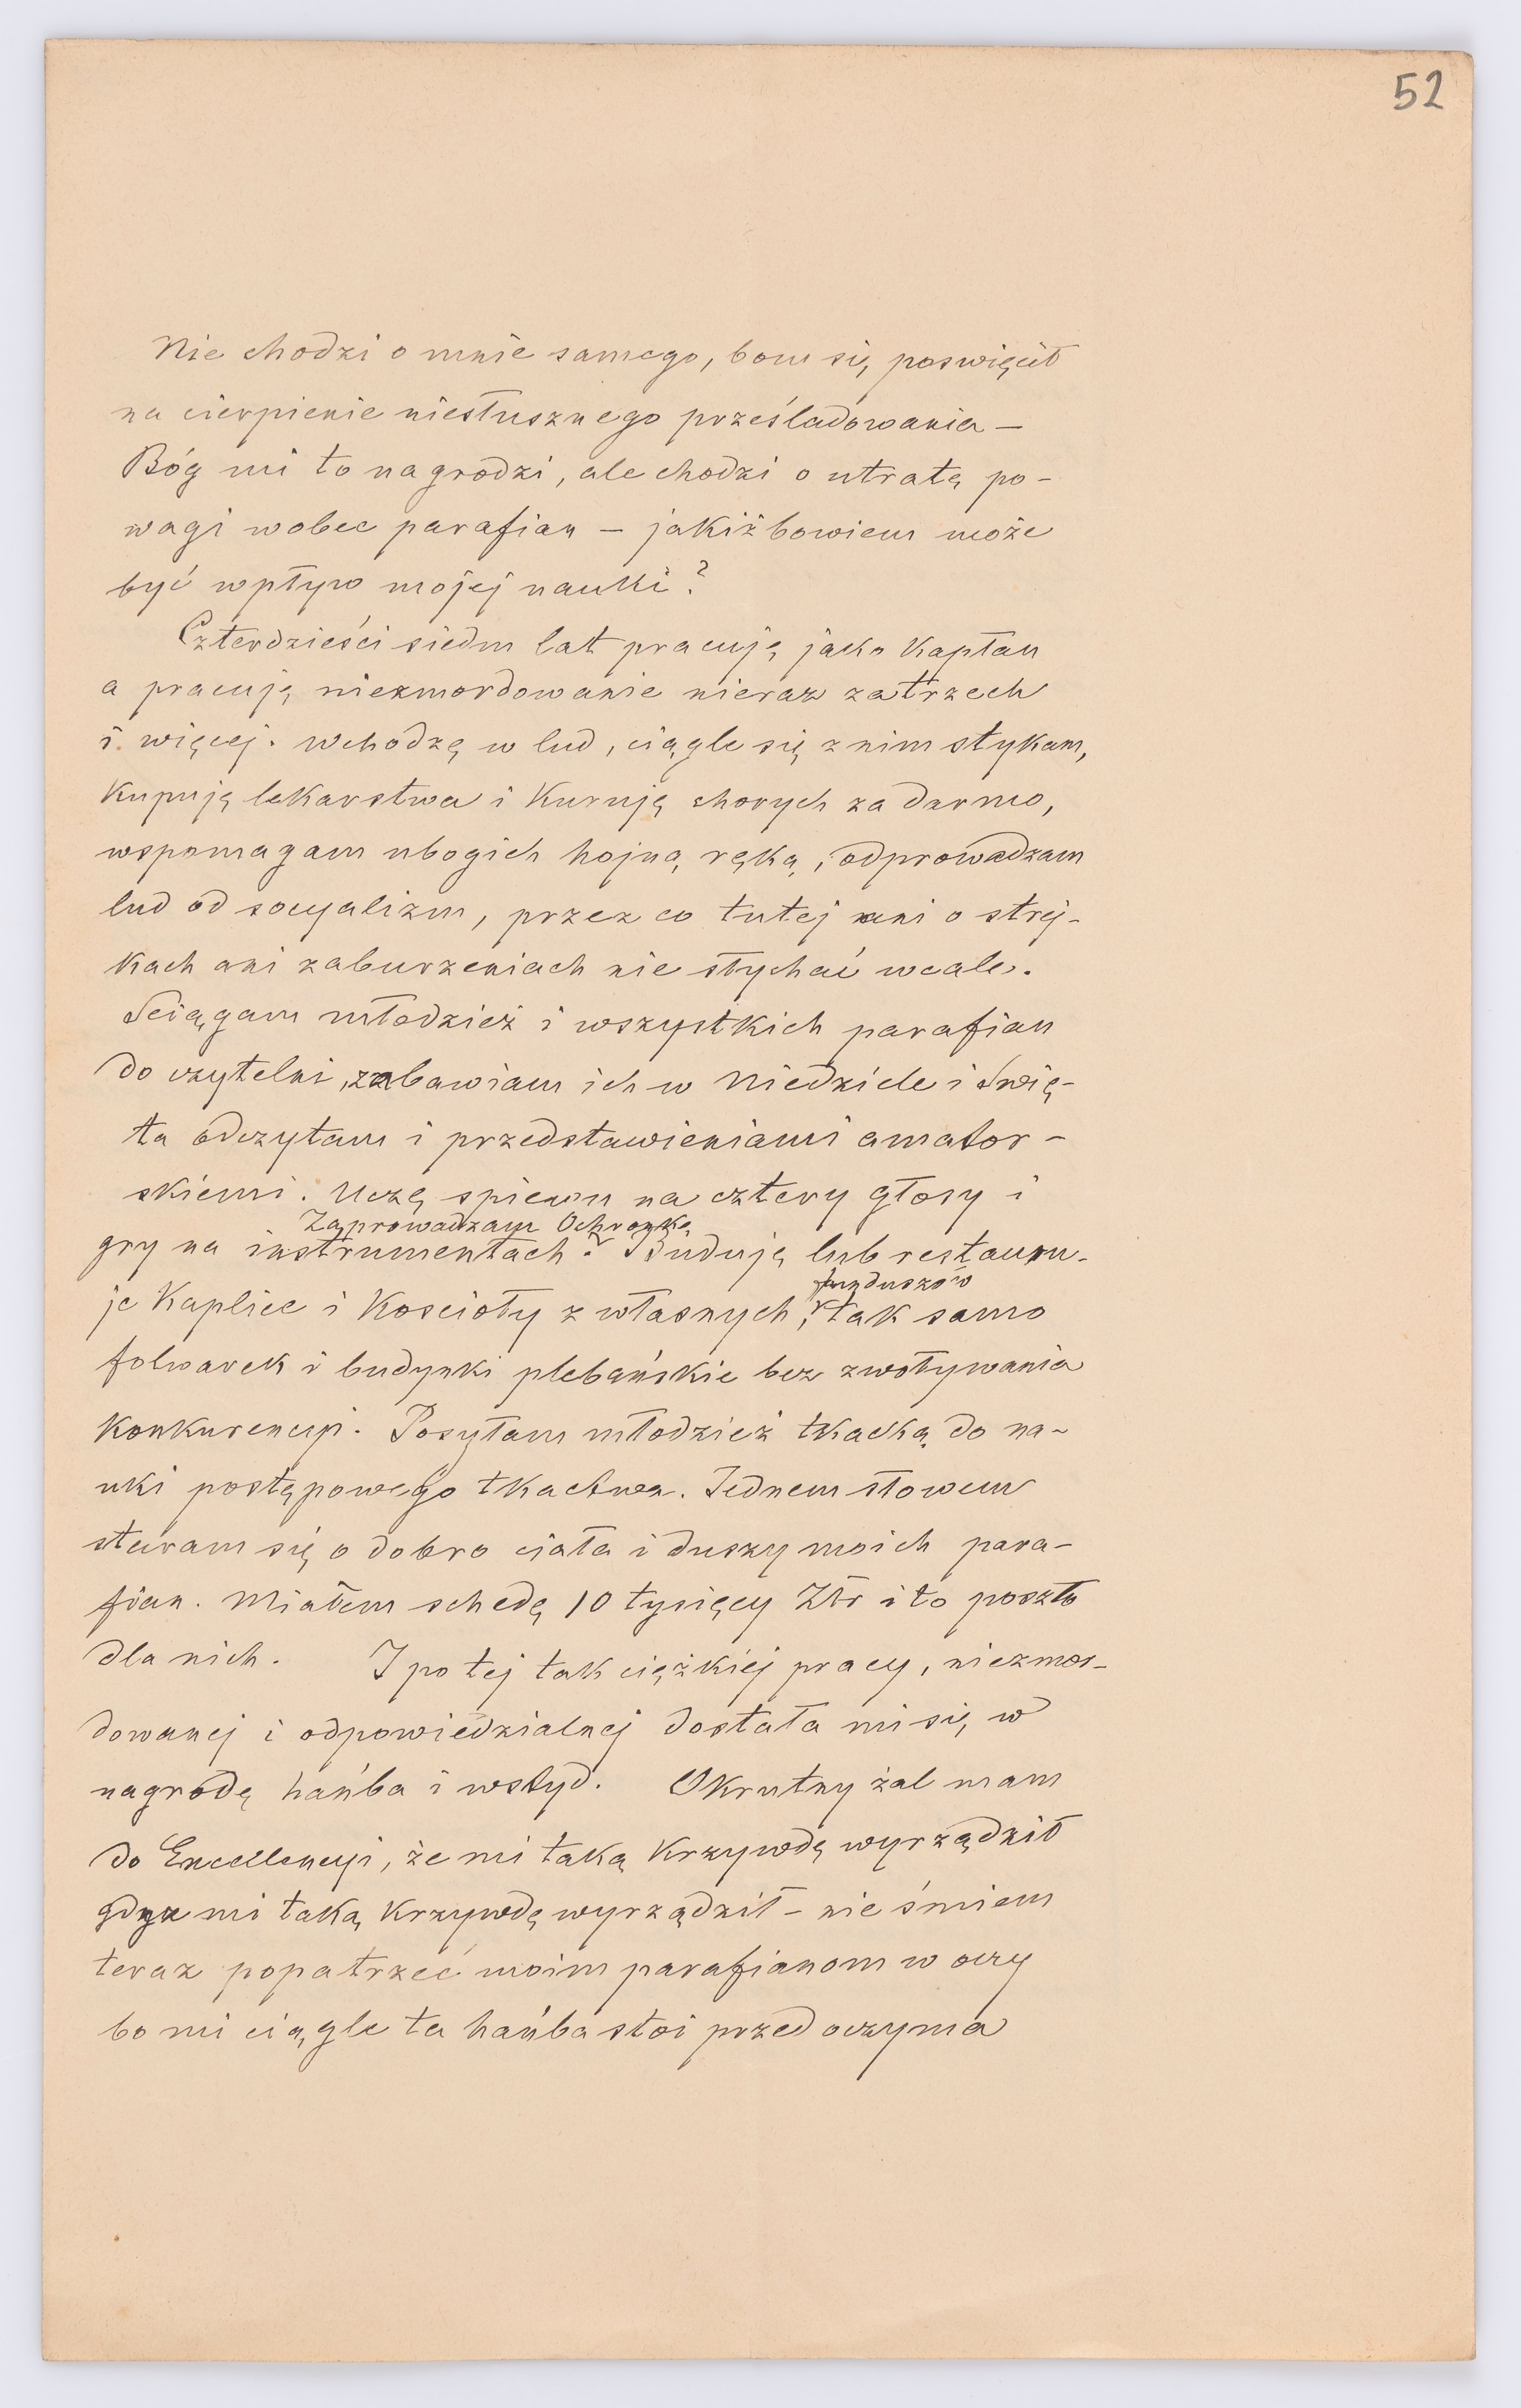 52
Nie chodzi o mnie samego, bom się poswięcił
na cierpienie niesłusznego prześladowania —
Bóg mi to nagrodzi, ale chodzi o utratę po-
wagi wobec parafian — jakiż bowiem może
być wpływ mojej nauki?
Czterdzieści siedm lat pracuję jako Kapłan
a pracuję niezmordowanie nieraz za trzech
i więcej. Wchodzę w lud, ciągle się z nim stykam,
Kupuję lekarstwa i Kuruję chorych za darmo,
wspomagam ubogich hojną ręką, odprowadzam
lud od socyalizm, przez co tutej ani o strej-
kach ani zaburzeniach nie słychać wcale.
Sciągam młodzież i wszystkich parafian
do czytelni, zabawiam ich w Niedziele i Swię-
ta odczytam i przedstawieniami amator-
skiemi. Uczę spiewu na cztery głosy i
Zaprowadzam Ochronkę
gry na instrumentach. Buduję lub restauru-
funduszów
je Kaplice i Koscioły z własnych, tak samo
folwarek i budynki plebańskie bez zwoływania
Konkurencyi. Posyłam młodzież tkacką do na-
uki postępowego tkactwa. Jednem słowem
staram się o dobro ciała i duszy moich para-
fian. Miałem schedę 10 tysięcy Złr i to poszło
dla nich. I po tej tak ciężkiéj pracy, niezmor-
dowanej i odpowiedzialnej dostała mi się w
nagrodę hańba i wstyd. Okrutny żal mam
do Excellencyi, że mi taką Krzywdę wyrządził
gdyż mi taką Krzywdę wyrządził — nie śmiem
teraz popatrzeć moim parafianom w oczy
bo mi ciągle ta hańba stoi przed oczyma